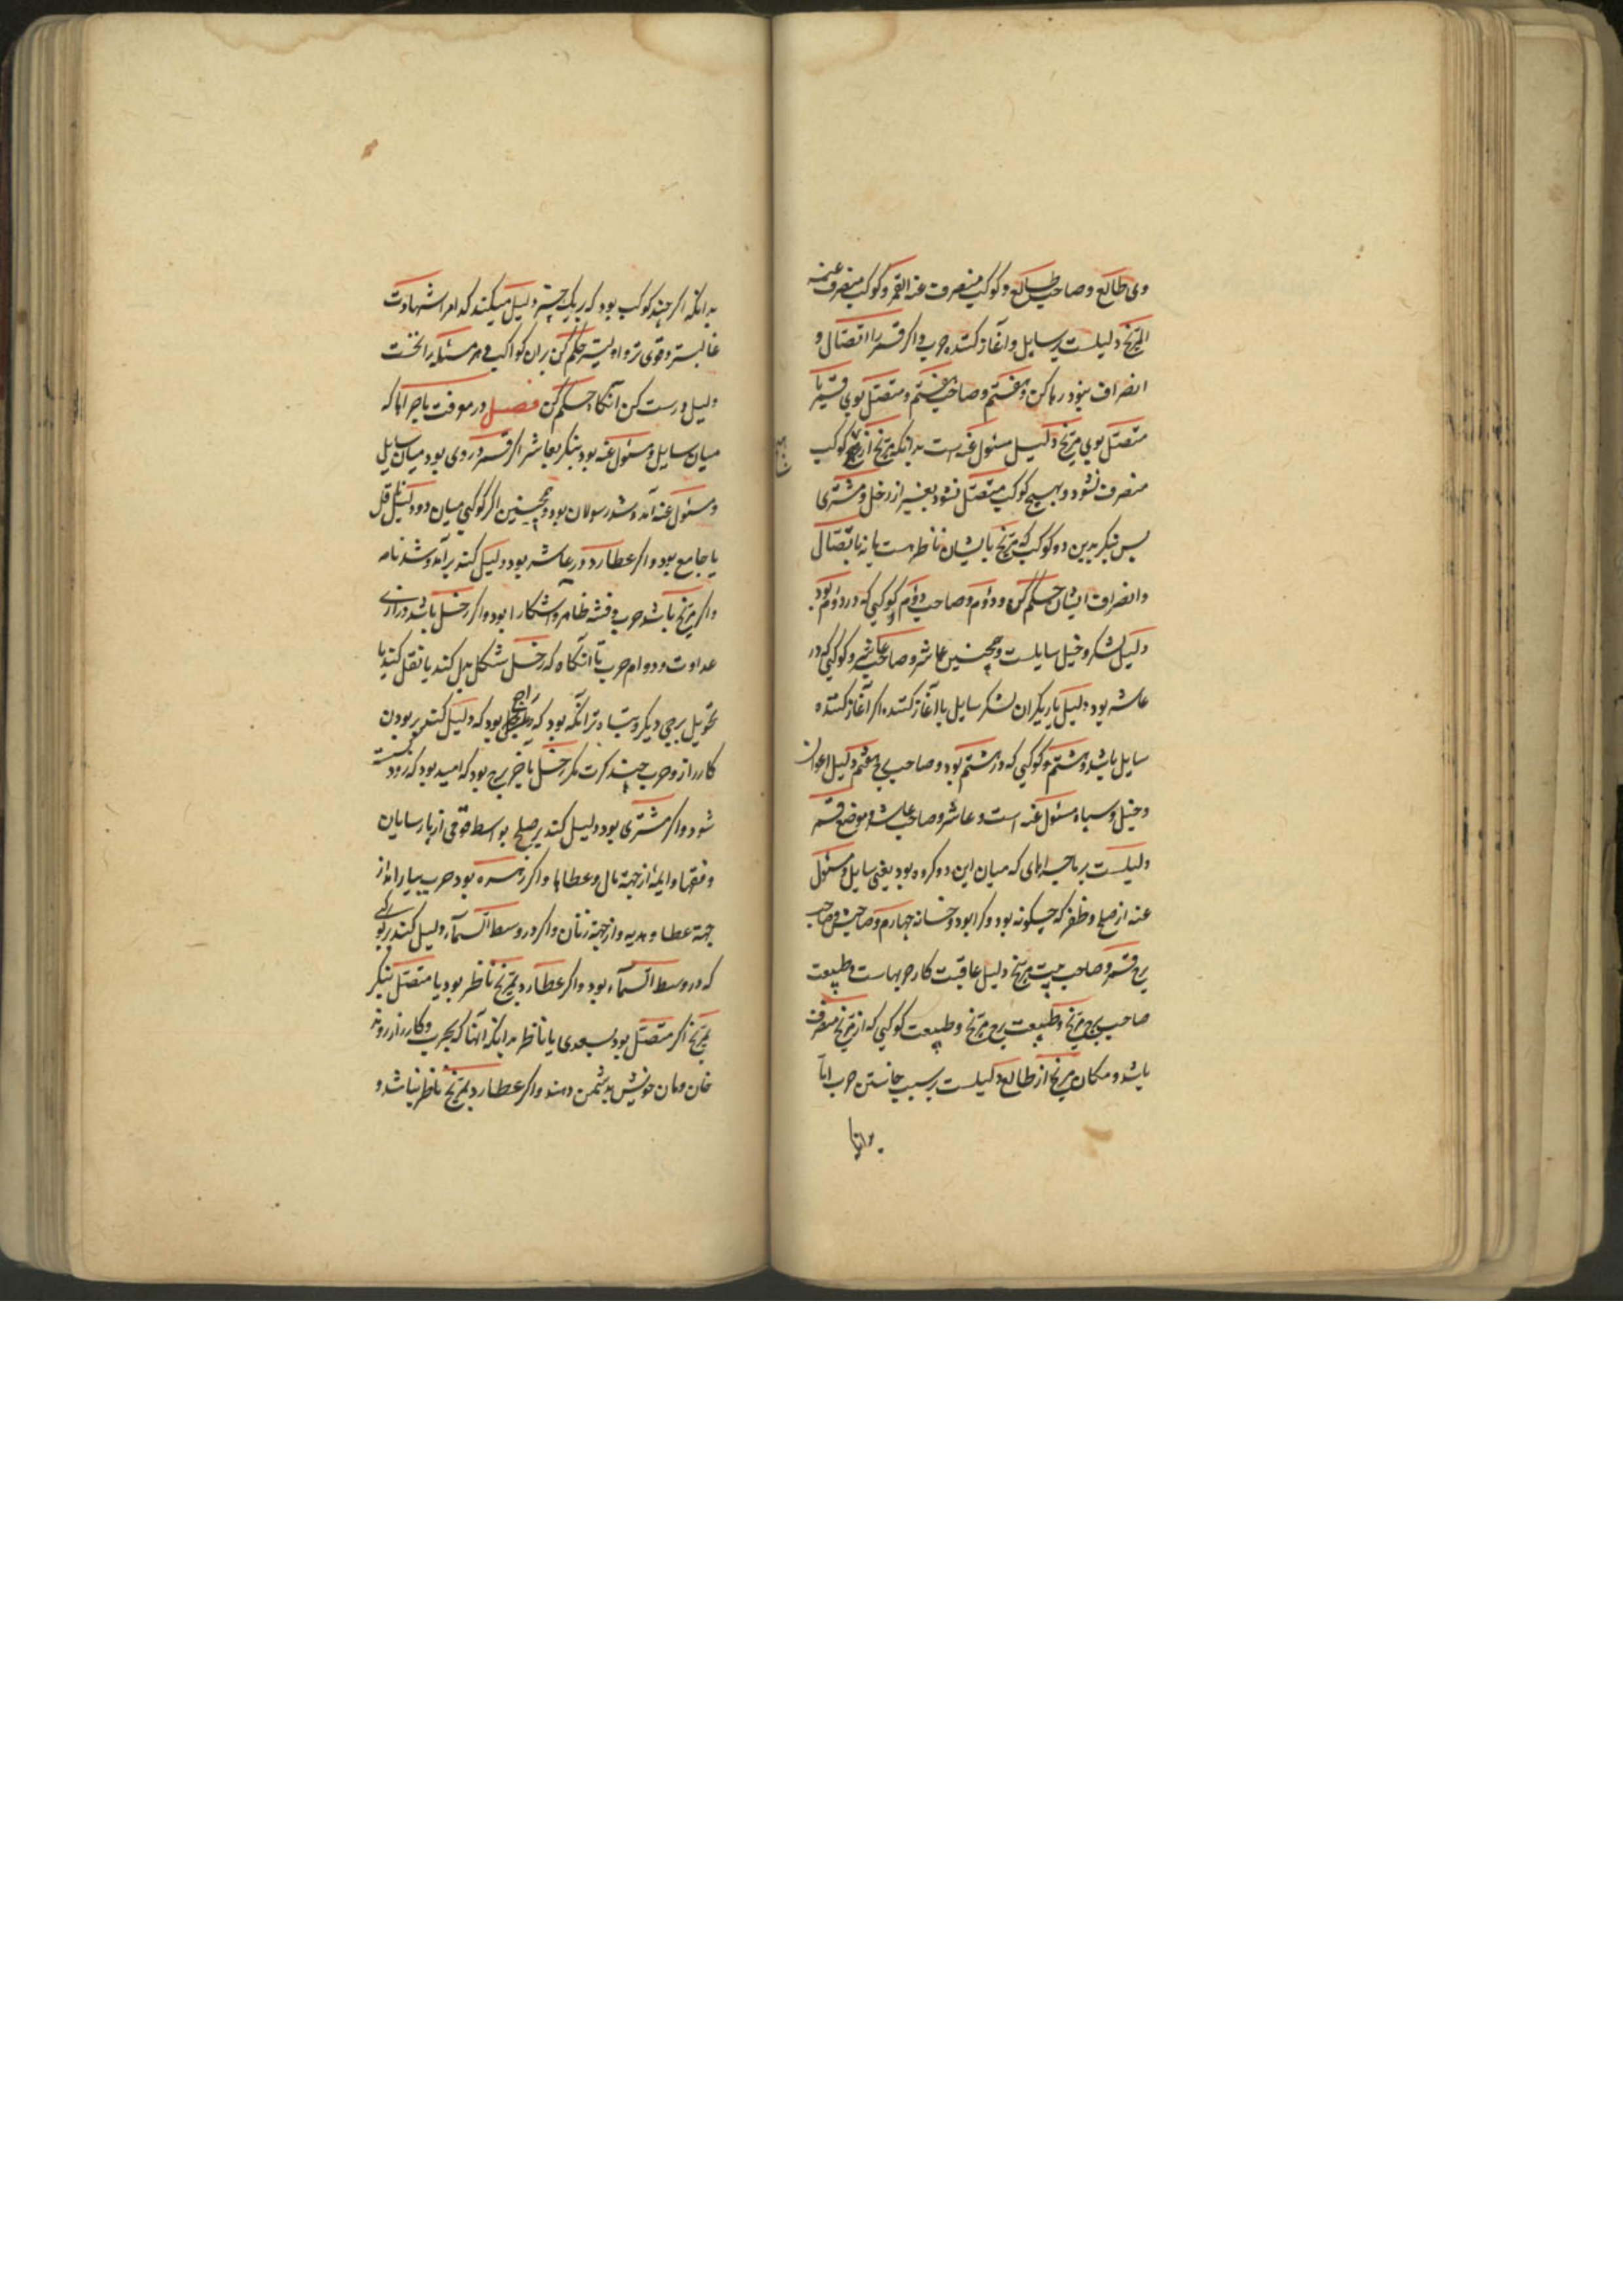 وی طالع و صاحب طالع و کوکب منصرف عنه القمر و کوکب منصرف عنه
المریخ دلیلست بر سایل و آغاز کننده حرب و اگر قمر را اتصال و
انصراف نبود رها کن و هفتم و صاحب هفتم و متصل بوی قمر یا
متصل بوی مریخ دلیل مسئول عنه است بدانکه مریخ از کوکب
منصرف نشود و بهیچ کوکب متصل نشود بغیر از زحل و مشتری
پس بنگر بدین دو کوکب که مریخ بایشان ناظر هست یا نه باتصال
و انصراف ایشان حکم کن و دوم و صاحب دوم و کوکبی که در دوم بود
دلیل لشکر و خیل سایلست و همچنین عاشر و صاحب عاشر و کوکبی که در
عاشر بود دلیل یاریگران لشکر سایل یا آغاز کننده اگر آغاز کننده
سایل باشد و هشتم و کوکبی که در هشتم بود و صاحب هشتم دلیل اعوان
و خیل و سپاه مسئول عنه است و عاشر و صاحب عاشر و موضع قمر
دلیلست بر ماجراهای که میان این دو کروه بود یعنی سایل و مسئول
عنه از صلح و ظفر که چکونه بود و کرا بود و خانه چهارم و صاحبش و صاحب
برج قمر و صاحب بیت مریخ دلیل عاقبت کار حربهاست و طبیعت
صاحب برج مریخ و طبیعت برج مریخ و طبیعت کوکبی که از مریخ منصرف
باشد و مکان مریخ از طالع دلیلست بر سبب خاستن حرب اما
بدانکه اکر چند کوکب بود که بر یک چیز دلیل میکنند کدام را شهادت
غالبتر و قوی تر و اولیتر حکم کن بران کواکب و هر مسئله را نخست
دلیل درست کن آنکاه حکم کن فصل در معرفت ماجراها که
میان سایل و مسئول عنه بود بنکر بعاشر اکر قمر در وی بود میان سایل
و مسئول عنه آمد و شد رسولان بود و همچنین اکر کوکبی میان دو دلیل ناقل
یا جامع بود و اکر عطارد در عاشر بود دلیل کند بر آمد و شد نامه
و اکر مریخ باشد حرب و فتنه ظاهر و آشکارا بود و اکر زحل باشد درازی
عداوت و دوام حرب تا آنکاه که زحل شکل بدل کند یا نقل کند یا
تحویل برجی دیکر و تباه تر آنکه بود که راجع بود که دلیل کند بر بودن
کارزار و حرب چند کرت مکر زحل بآخر برج بود که امید بود که زود
شود و اکر مشتری بود دلیل کند بر صلح بواسطه قومی از پارسایان
و فقها و ایمه از جهة مال و عطاها و اکر زهره بود حرب بسیار اما از
جهة عطا و هدیه و از جهة زنان و اکر در وسط السماء دلیل کند بر
که در وسط السماء بود و اکر عطارد بمریخ ناظر بود یا متصل بنکر
بمریخ اکر متصل بود بسعدی یا ناظر بدانکه آنها که بحرب و کارزار روند
خان و مان خویش بدشمن دهند و اکر عطارد بمریخ ناظر نباشد و